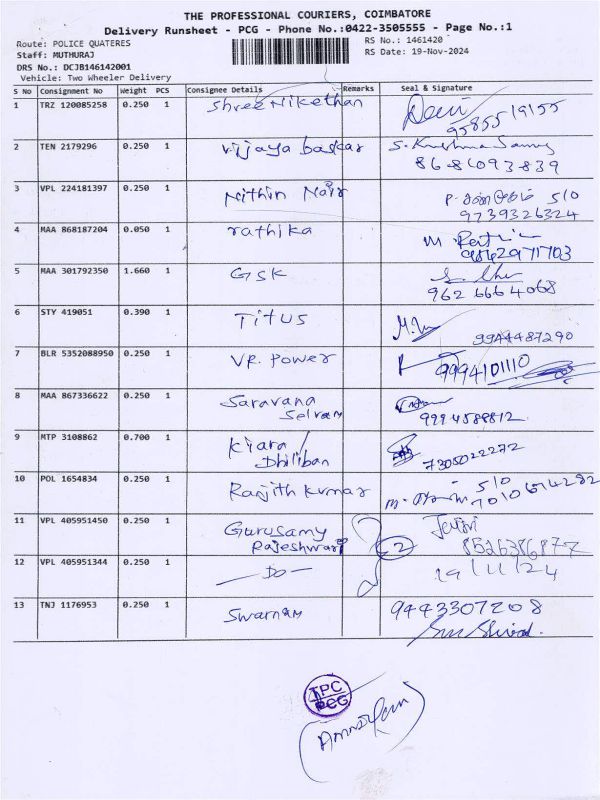 THE PROFESSIONAL COURIERS, COIMBATORE
Delivery Runsheet - PCG - Phone No.:0422-3505555 - Page No.:1
Route: POLICE QUATERES
RS No.: 1461420
Staff: MUTHURAJ
RS Date: 19-Nov-2024
DRS No.: DCJB146142001
Vehicle: Two Wheeler Delivery
S No Consignment No Weight PCS Consignee Details Remarks Seal & Signature
1 TRZ 120085258 0.250 1 Shree Nikethan Devi
95855 19155
2 TEN 2179296 0.250 1 Vijaya baskar S. Krishna Samy
8686093839
3 VPL 224181397 0.250 1 Nithin Nair S/O
9739326324
4 MAA 868187204 0.050 1 rathika M.
9842971703
5 MAA 301792350 1.660 1 GSK
962 6664068
6 STY 419051 0.390 1 Titus
9944487290
7 BLR 5352088950 0.250 1 VR. Power 9994101110
8 MAA 867336622 0.250 1 Saravana
Selvam 9994589812
9 MTP 3108862 0.700 1 Kiara /
Dhiliban 7305022272
10 POL 1654834 0.250 1 Ranjith kumar S/O
11 VPL 405951450 0.250 1 Gurusamy
Rajeshwari 2 8526386877
12 VPL 405951344 0.250 1 — Do — 19/11/24
13 TNJ 1176953 0.250 1 Swarnam 9443307208
TPC
PCG